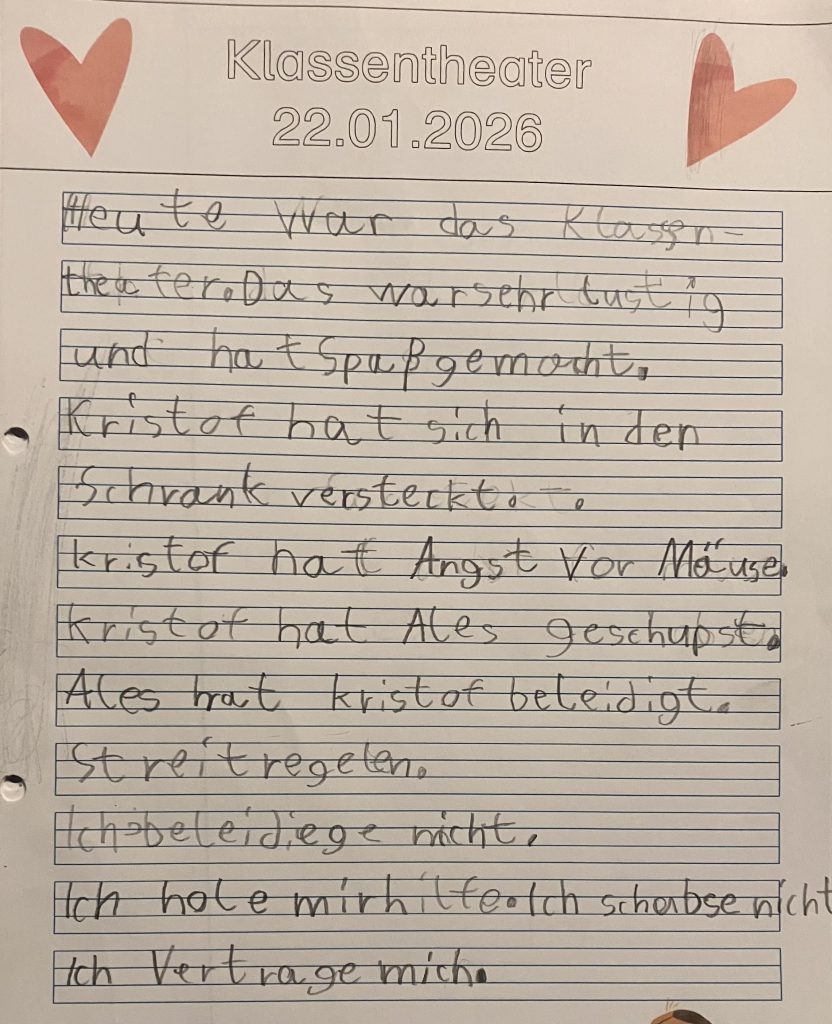 Klassentheater
22.01.2026
Heute War das Klassen-
theater. Das war sehr lustig
und hat Spaß gemacht.
Kristof hat sich in den
Schrank versteckt.
kristof hat Angst Vor Mäuse.
kristof hat Ales geschupst.
Ales hat kristof beleidigt.
Streitregelen.
Ich beleidiege nicht.
Ich hole mir hilfe. Ich schubse nicht
Ich Vertrage mich.